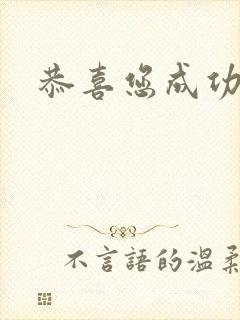 恭喜您成功
不言語的溫柔